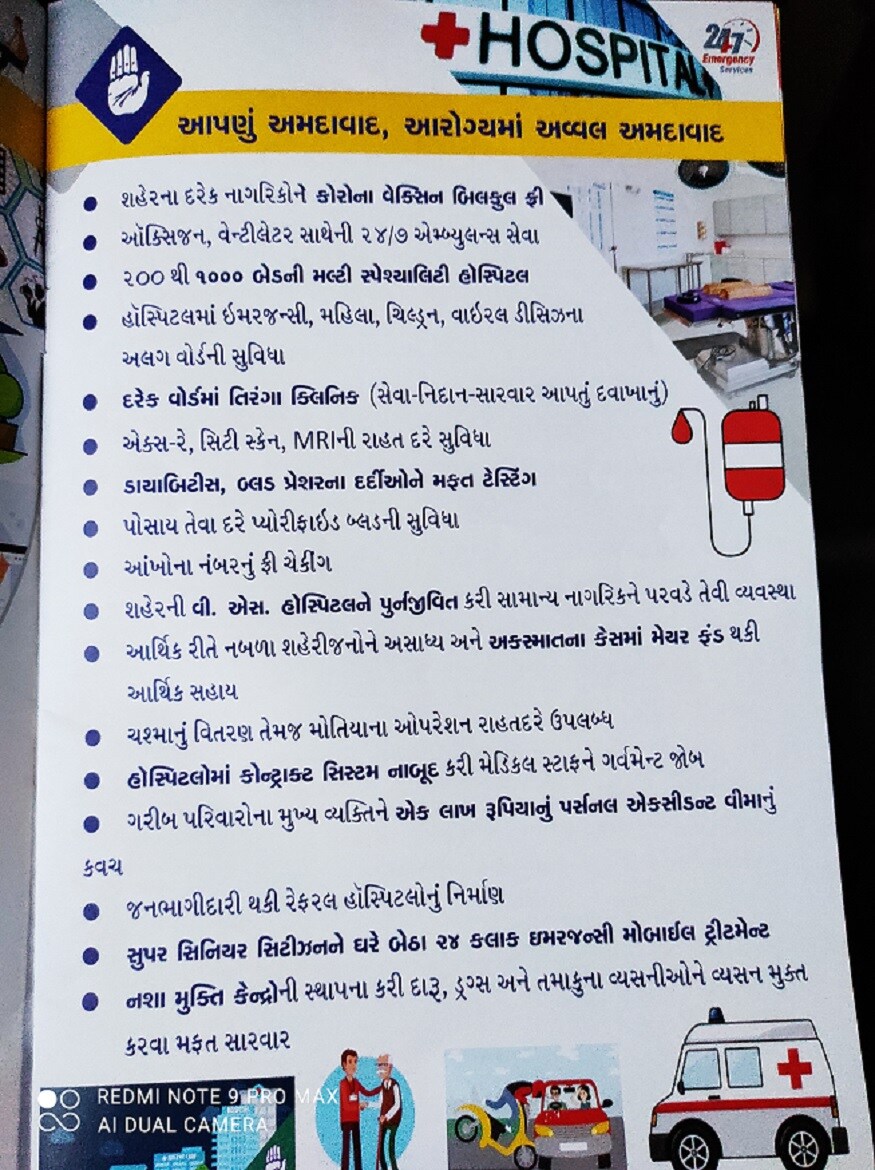 HOSPITAL
24x7
Emergency
Services
આપણું અમદાવાદ, આરોગ્યમાં અવ્વલ અમદાવાદ
• શહેરના દરેક નાગરિકોને કોરોના વેક્સિન બિલકુલ ફ્રી
• ઑક્સિજન, વેન્ટીલેટર સાથેની ૨૪/૭ એમ્બ્યુલન્સ સેવા
• ૨૦૦ થી ૧૦૦૦ બેડની મલ્ટી સ્પેશ્યાલિટી હોસ્પિટલ
• હૉસ્પિટલમાં ઇમરજન્સી, મહિલા, ચિલ્ડ્રન, વાઇરલ ડીસિઝના
અલગ વોર્ડની સુવિધા
• દરેક વોર્ડમાં તિરંગા ક્લિનિક (સેવા-નિદાન-સારવાર આપતું દવાખાનું)
• એક્સ-રે, સિટી સ્કેન, MRIની રાહત દરે સુવિધા
• ડાયાબિટીસ, બ્લડ પ્રેશરના દર્દીઓને મફત ટેસ્ટિંગ
• પોસાય તેવા દરે પ્યોરીફાઇડ બ્લડની સુવિધા
• આંખોના નંબરનું ફ્રી ચેકીંગ
• શહેરની વી. એસ. હોસ્પિટલને પુર્નજીવિત કરી સામાન્ય નાગરિકને પરવડે તેવી વ્યવસ્થા
• આર્થિક રીતે નબળા શહેરીજનોને અસાધ્ય અને અકસ્માતના કેસમાં મેયર ફંડ થકી
આર્થિક સહાય
• ચશ્માનું વિતરણ તેમજ મોતિયાના ઓપરેશન રાહતદરે ઉપલબ્ધ
• હોસ્પિટલોમાં કોન્ટ્રાક્ટ સિસ્ટમ નાબૂદ કરી મેડિકલ સ્ટાફને ગર્વમેન્ટ જોબ
• ગરીબ પરિવારોના મુખ્ય વ્યક્તિને એક લાખ રૂપિયાનું પર્સનલ એકસીડન્ટ વીમાનું
કવચ
• જનભાગીદારી થકી રેફરલ હૉસ્પિટલોનું નિર્માણ
• સુપર સિનિયર સિટીઝનને ઘરે બેઠા ૨૪ કલાક ઇમરજન્સી મોબાઈલ ટ્રીટમેન્ટ
• નશા મુક્તિ કેન્દ્રોની સ્થાપના કરી દારૂ, ડ્રગ્સ અને તમાકુના વ્યસનીઓને વ્યસન મુક્ત
કરવા મફત સારવાર
REDMI NOTE 9 PRO MAX
AI DUAL CAMERA